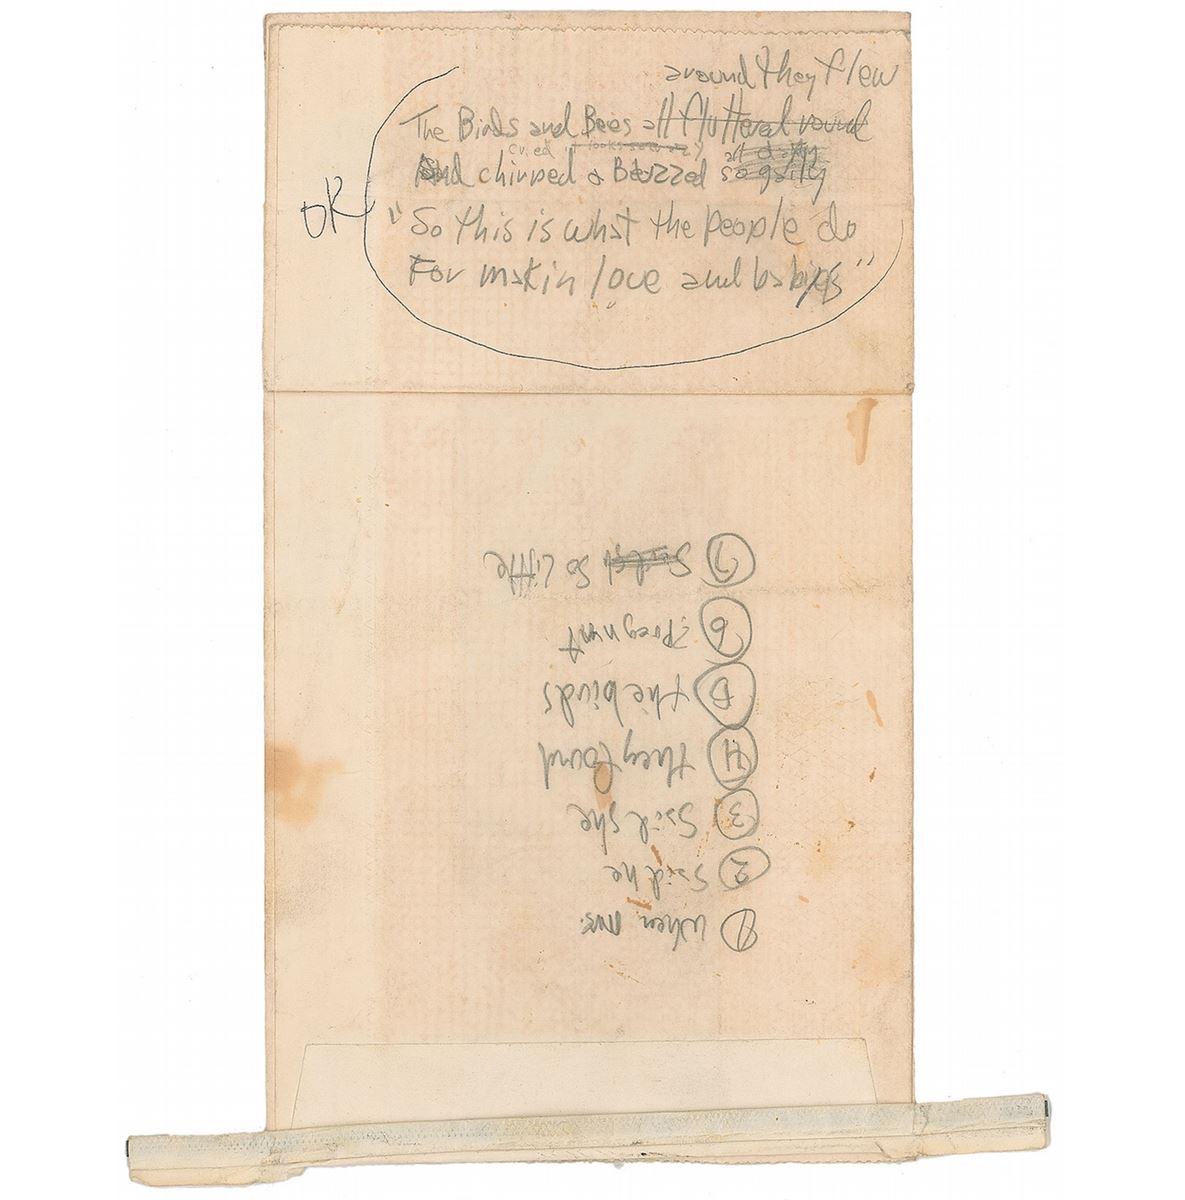 around they flew
The Birds and Bees all fluttered round
cried it looks so crazy all day
And chirped & Buzzed so gaily
OR
"So this is what the people do
For makin love and babies"
① When Mrs.
② Said he
③ Said she
④ they found
⑤ the birds
⑥ Pregnant
⑦ So Little